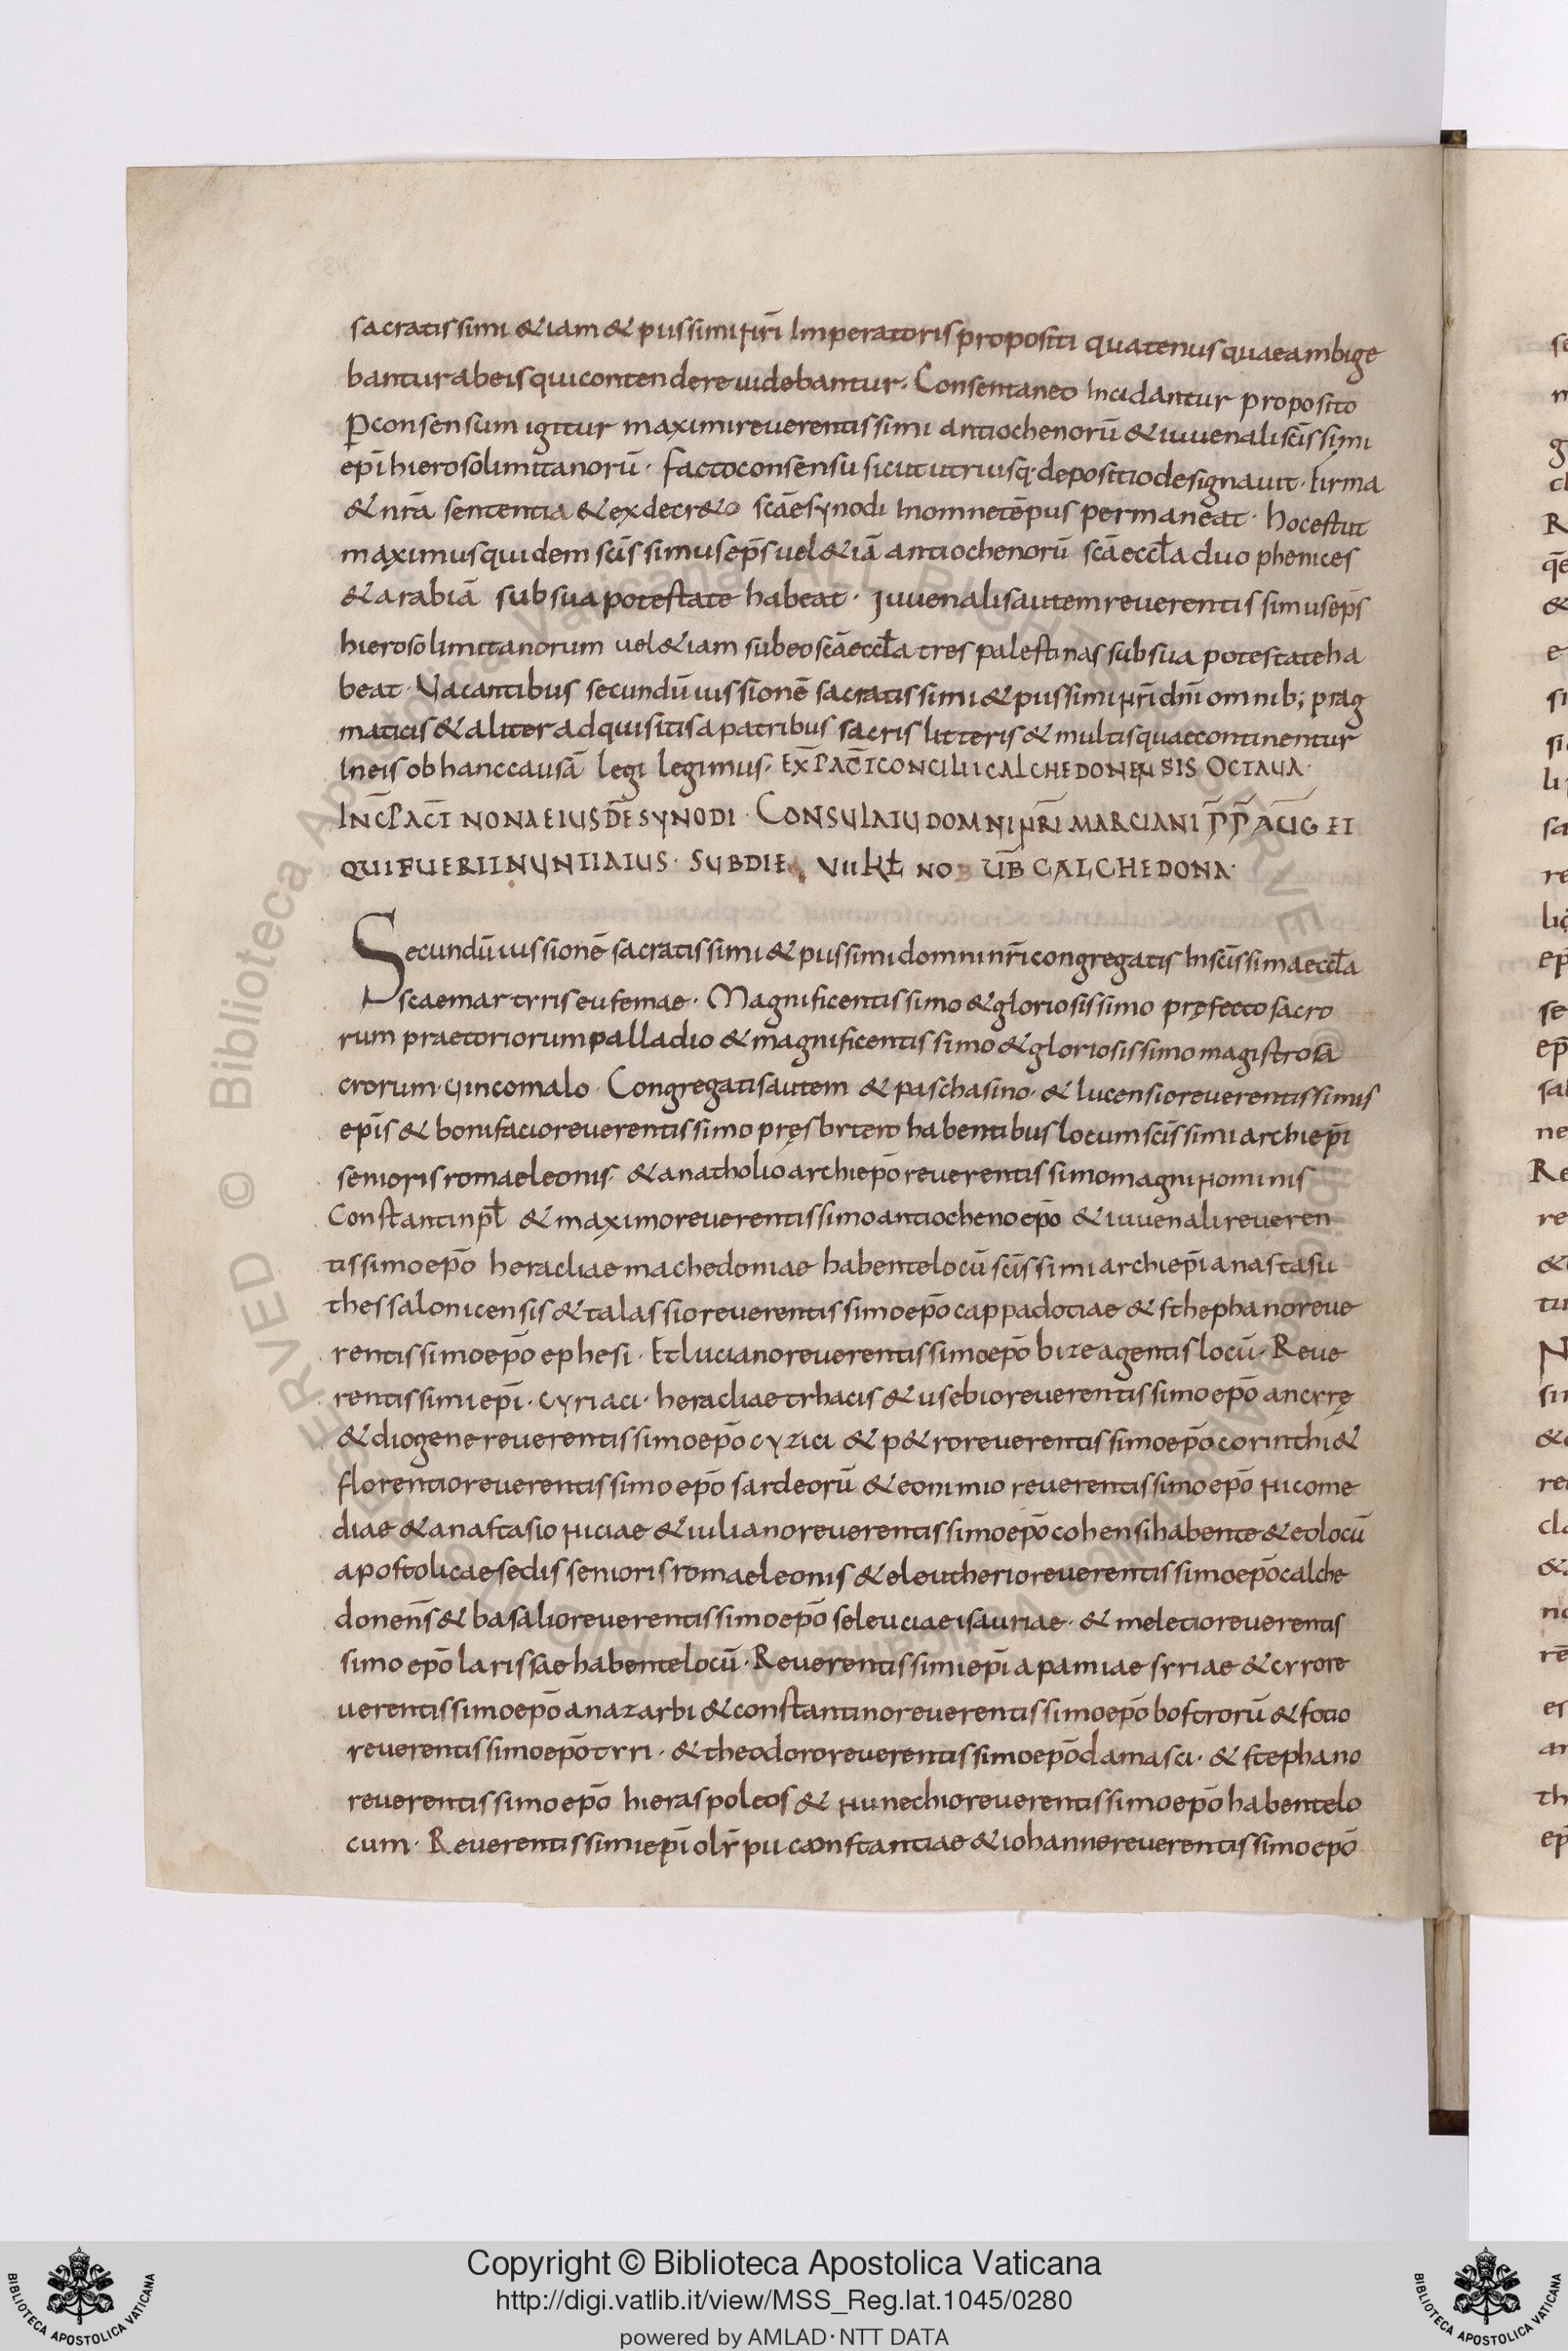 sacratissimi & iam & piissimi nr̄i Imperatoris propositi quatenus quae ambige
bantur ab eis qui contendere uidebantur. Consentaneo Incidantur proposito
P̱ consensum igitur maximi reuerentissimi antiochenorū & iuuenali sc̄issimi
ep̄i hierosolimitanorū · facto consensu sicut utriusq· depositio designauit · firma
& nr̄a sententia & ex decr&o sc̄ae synodi In omne tēpus permaneat · hoc est ut
maximus quidem sc̄issimus ep̄s uel &iā antiochenorū sc̄a eccl̄a duo phenices
& arabiā sub sua potestate habeat · Iuuenalis autem reuerentissimus ep̄s
hierosolimitanorum uel &iam sub eo sc̄a eccl̄a tres palestinas sub sua potestate ha
beat · Vacantibus secundū iussionē sacratissimi & piissimi nr̄i dn̄i omnib; prag
maticis & aliter adquisitis a patribus sacris litteris & multis quae continentur
In eis ob hanc causā legi legimus · EXP̄ ACT̄ CONCILII CALCHEDONENSIS OCTAUA ·
INC̄P ACT̄ NONA EIUSDĒ SYNODI · CONSULATU DOMNI NR̄I MARCIANI P̄P̄ AUG ET
QUI FUERIT NUNTIATUS · SUB DIE VII KL̄ NOB UB̄ CALCHEDONA ·
Secundū iussionē sacratissimi & piissimi domni nr̄i congregatis In sc̄issima eccl̄a
scae martyris eufemae · Magnificentissimo & gloriosissimo pręfecto sacro
rum praetoriorum palladio & magnificentissimo & gloriosissimo magistro sa
crorum · uincomalo · Congregatis autem & paschasino · & lucensio reuerentissimis
ep̄is & bonifacio reuerentissimo pręsbytero habentibus locum sc̄issimi archiep̄i
senioris romae leonis · & anatholio archiep̄o reuerentissimo magni nominis
Constantinpl̄ & maximo reuerentissimo antiocheno ep̄o & iuuenali reueren
tissimo ep̄o heracliae machedoniae habente locū sc̄issimi archiep̄i anastasii
thessalonicensis & talassio reuerentissimo ep̄o cappadociae & sthephano reue
rentissimo ep̄o ephesi · Et luciano reuerentissimo ep̄o bize agentis locū · Reue
rentissimi ep̄i · cyriaci · heracliae trhacis & usebio reuerentissimo ep̄o ancyrę
& diogene reuerentissimo ep̄o cyzici & p&ro reuerentissimo ep̄o corinthi &
florentio reuerentissimo ep̄o sardeorū & eonimio reuerentissimo ep̄o nicome
diae & anastasio niciae & iuliano reuerentissimo ep̄o cohensi habente & eo locū
apostolicae sedis senioris romae leonis & eleutherio reuerentissimo ep̄o calche
donen̄s & basalio reuerentissimo ep̄o seleuciae isauriae · & meletio reuerentis
simo ep̄o larissae habente locū · Reuerentissimi ep̄i apamiae syriae & cyro re
uerentissimo ep̄o anazarbi & constantino reuerentissimo ep̄o bostrorū & fotio
reuerentissimo ep̄o tyri · & theodoro reuerentissimo ep̄o damasci · & stephano
reuerentissimo ep̄o hieraspoleos & nunechio reuerentissimo ep̄o habente lo
cum · Reuerentissimi ep̄i olȳpii constantiae & iohanne reuerentissimo ep̄o
Copyright © Biblioteca Apostolica Vaticana
http://digi.vatlib.it/view/MSS_Reg.lat.1045/0280
powered by AMLAD·NTT DATA
BIBLIOTECA APOSTOLICA VATICANA
BIBLIOTECA APOSTOLICA VATICANA